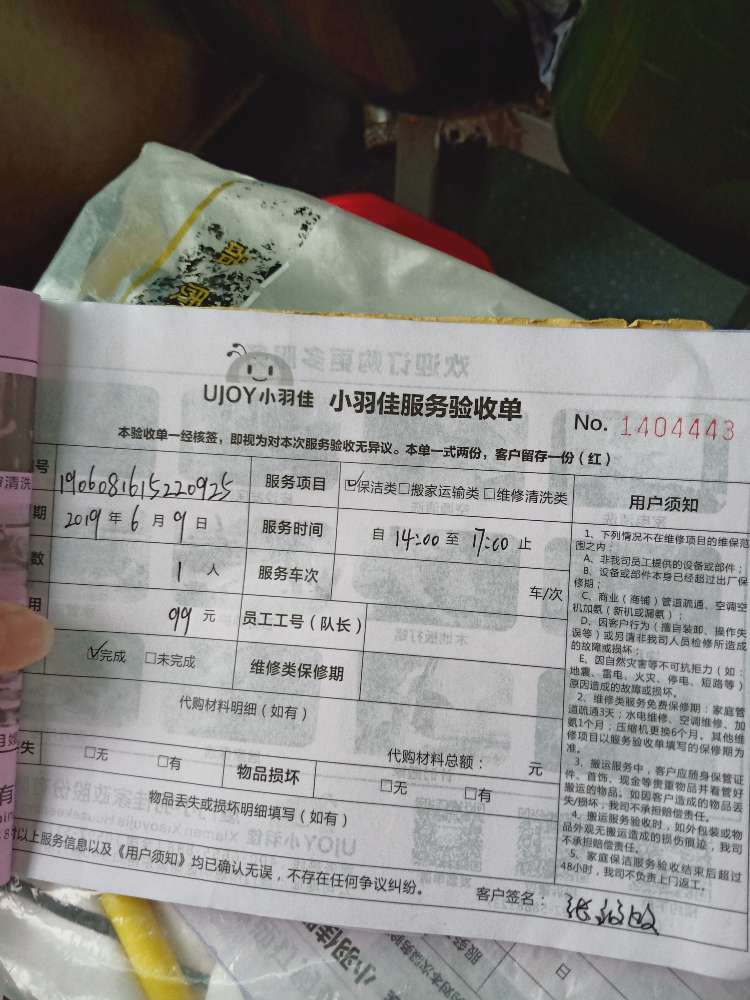 UJOY小羽佳 小羽佳服务验收单
No. 1404443
本验收单一经核签，即视为对本次服务验收无异议。本单一式两份，客户留存一份（红）
号 1906081615220925 服务项目 ☑保洁类□搬家运输类□维修清洗类
期 2019年6月9日 服务时间 自 14:00 至 17:00 止
数 1 人 服务车次 车/次
用 99 元 员工工号（队长）
☑完成 □未完成 维修类保修期
代购材料明细（如有）
代购材料总额： 元
失 □无 □有 物品损坏 □无 □有
物品丢失或损坏明细填写（如有）
以上服务信息以及《用户须知》均已确认无误，不存在任何争议纠纷。
客户签名：
用户须知
1、下列情况不在维修项目的维保范
围之内：
A、非我司员工提供的设备或部件；
B、设备或部件本身已经超过出厂保
修期；
C、商业（商铺）管道疏通、空调空
机加氨（新机或漏氨）；
D、因客户行为（擅自装卸、操作失
误等）或另请非我司人员检修所造成
的故障或损坏；
E、因自然灾害等不可抗拒力（如：
地震、雷电、火灾、停电、短路等）
原因造成的故障或损坏。
2、维修类服务免费保修期：家庭管
道疏通3天；水电维修、空调维修、加
氨1个月；压缩机更换6个月。其他维
修项目以服务验收单填写的保修期为
准。
3、搬运服务中，客户应随身保管证
件、首饰、现金等贵重物品并看管好
搬运的物品。如因客户造成的物品丢
失/损坏，我司不承担赔偿责任。
4、搬运服务验收时，如外包装或物
品外观无搬运造成的损伤痕迹，我司
不承担赔偿责任。
5、家庭保洁服务验收结束后超过
48小时，我司不负责上门返工。